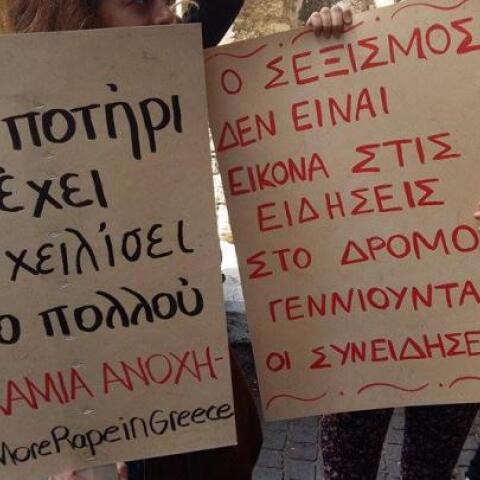 ποτήρι
έχει
χειλίσει
ο πολλού
ΑΜΙΑ ΑΝΟΧΗ-
MoreRapeinGreece
Ο ΣΕΞΙΣΜΟΣ
ΔΕΝ ΕΙΝΑΙ
ΕΙΚΟΝΑ ΣΤΙΣ
ΕΙΔΗΣΕΙΣ
ΣΤΟ ΔΡΟΜΟ
ΓΕΝΝΙΟΥΝΤΑ
ΟΙ ΣΥΝΕΙΔΗΣΕ